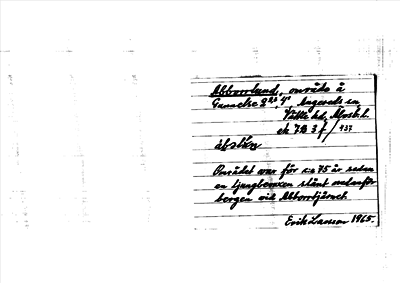 Abborrlund, område å
Gunnetse 2, Angereds sn,
Vättle hd, Älvsb. l.
ek 7B 3 f / 937
Området var för c:a 75 år sedan
en ljungbevuxen slänt nedanför
bergen vid Abborrtjärnet.
Erik Larsson 1965.